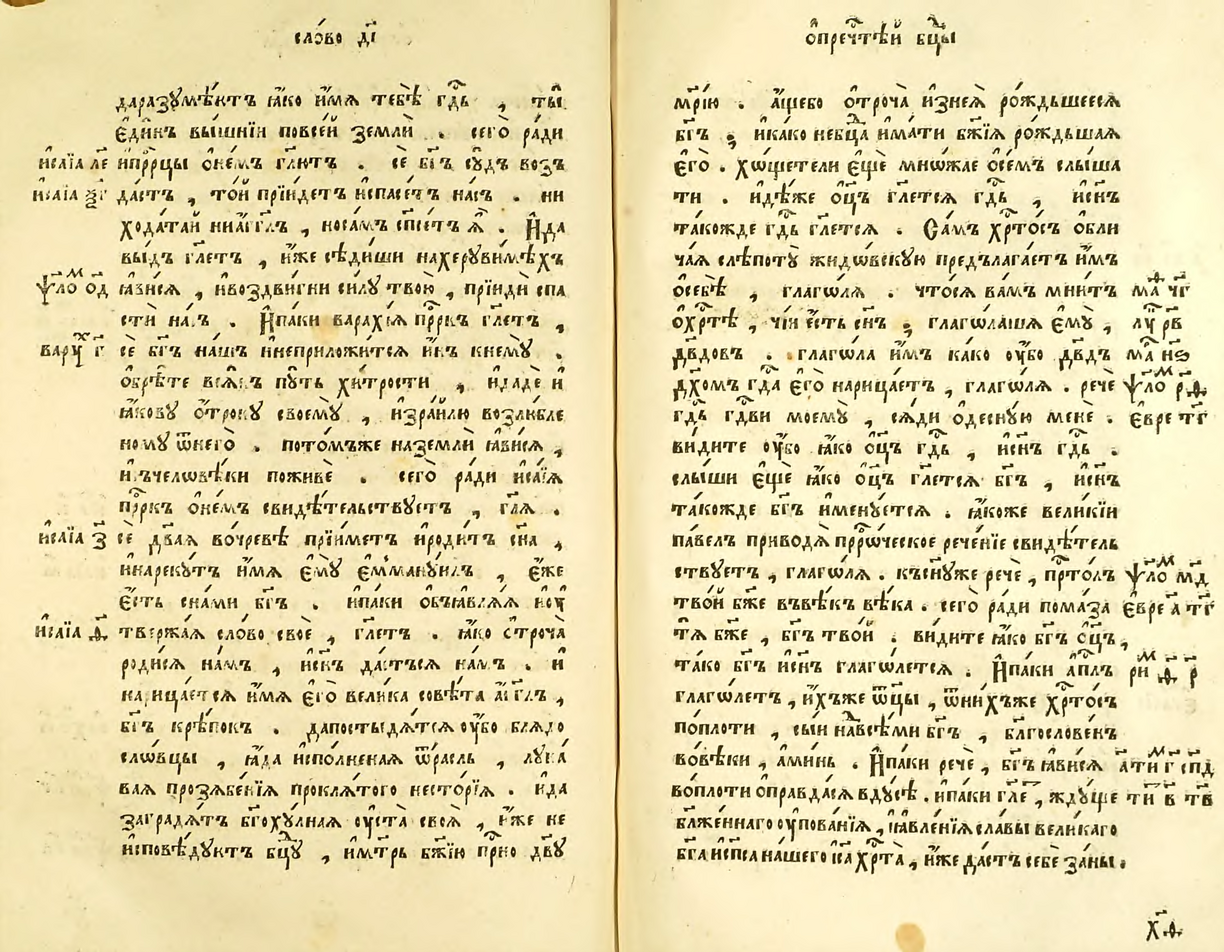 сло́во д҃і
даразꙋмѣ́ютъ ꙗ҆́ко и҆́мѧ тебѣ̀ гд҇ь , ты̀
є҆ди́нъ вы́шнїи повсе́й землѝ . сего̀ ра́ди
и҆са́їа ле и҆прⷪ҇рцы ѡ҆не́мъ гл҃ютъ . сѐ бг҃ъ сꙋ́дъ воз
и҆са́їа ѯ҃г да́стъ , то́й прїи́детъ и҆спасе́тъ на́съ . ни
хода́тай ниа҆́гг҃лъ , носа́мъ сп҃се́тъ ѧ҆̀ . И҆да
вы́дъ гл҃етъ , и҆́же сѣди́ши нахерꙋви́мѣхъ
ѱⷧ҇о ѻ҃д ꙗ҆ви́сѧ , и҆воздви́гни си́лꙋ твою̀ , прїидѝ спа
стѝ на́съ . И҆па́ки варахі́ѧ прⷪ҇ркъ гл҃етъ ,
варꙋ́х г҃ сѐ бг҃ъ на́шъ и҆неприложи́тсѧ и҆́нъ кнемꙋ̀ .
ѡ҆брѣ́те всѧ́къ пꙋ́ть хи́трости , и҆дадѐ и҆
ꙗ҆́ковꙋ ѻ҆́трокꙋ своемꙋ̀ , и҆зра́илю возлю́бле
номꙋ ѿнего̀ . пото́мъже наземлѝ ꙗ҆ви́сѧ ,
и҆съчеловѣ́ки поживѐ . сего̀ ра́ди и҆са́їѧ
прⷪ҇ркъ ѡ҆не́мъ свидѣ́тельствꙋетъ , гл҃ѧ .
и҆са́їа з҃ сѐ дв҃аѧ вочре́вѣ прїи́метъ и҆роди́тъ сн҃а ,
и҆нарекꙋ́тъ и҆́мѧ є҆мꙋ̀ є҆мманꙋи́лъ , є҆́же
є҆́сть сна́ми бг҃ъ . и҆па́ки ѡ҆б̾ѧвлѧ́ѧ и҆оу҆
и҆са́їа ѳ҃ твержа́ѧ сло́во своѐ , гл҃етъ . ꙗ҆́ко ѻ҆троча̀
роди́сѧ на́мъ , и҆сн҃ъ да́стъсѧ на́мъ . и҆
нарица́етсѧ и҆́мѧ є҆го̀ вели́ка совѣ́та а҆́гг҃лъ ,
бг҃ъ крѣ́покъ . дапостыдѧ́тсѧ оу҆́бо блѧдо
сло́вцы , ꙗ҆́да и҆спо́лненаѧ ѿрасль , лꙋка́
ваѧ прозѧбе́нїѧ проклѧ́того несто́рїѧ . и҆да
заградѧ́тъ бг҃охꙋ́лнаѧ оу҆ста̀ своѧ̀ , и҆́же не
и҆сповѣ́дꙋютъ бц҃ꙋ , и҆мт҃рь бж҃їю прⷭ҇но дв҃ꙋ
ѡ҆пречⷭ҇тѣй бц҃ы
мр҃і́ю . а҆́щебо ѻ҆троча̀ и҆знеѧ̀ ро́ждьшеесѧ
бг҃ъ ; и҆ка́ко небц҃а и҆́мати бж҃їѧ ро́ждьшаѧ
є҆го̀ . хо́щетели є҆щѐ мно́жае ѡ҆се́мъ слы́ша
ти . и҆дѣ́же ѻ҆ц҃ъ гл҃етсѧ гд҇ь , и҆сн҃ъ
та́кожде гд҇ь гл҃етсѧ . Са́мъ хрⷭ҇то́съ ѡ҆бли
ча́ѧ слѣпотꙋ̀ жидо́вскꙋю предълага́етъ и҆̀мъ
ѡ҆себѣ̀ , глаго́лѧ . что́сѧ ва́мъ мни́тъ ма ч҃г
ѡ҆хрⷭ҇тѣ̀ , чі́и є҆́сть сн҃ъ ; глаго́лаша є҆мꙋ̀ , лꙋ рв
дв҃довъ . глаго́ла и҆̀мъ ка́ко оу҆́бо дв҃дъ ма н҃ѳ
дх҃омъ гд҇а є҆го̀ нарица́етъ , глаго́лѧ . речѐ ѱⷧ҇о р҃ѳ
гд҇ь гд҇ви моемꙋ̀ , сѧ́ди ѡ҆деснꙋ́ю менѐ . є҆вре т҃г
ви́дите оу҆́бо ꙗ҆́ко ѻ҆ц҃ъ гд҇ь , и҆сн҃ъ гд҇ь .
слы́ши є҆щѐ ꙗ҆́ко ѻ҆ц҃ъ гл҃етсѧ бг҃ъ , и҆сн҃ъ
та́кожде бг҃ъ и҆менꙋ́етсѧ . ꙗ҆́коже вели́кїи
па́велъ приводѧ̀ прⷪ҇рческое рече́нїе свидѣ́тель
ствꙋетъ , глаго́лѧ . късн҃ꙋже речѐ , прⷭ҇то́лъ ѱⷧ҇о м҃д
тво́й бж҃е въвѣ́къ вѣ́ка . сего̀ ра́ди пома́за є҆вре а҃ т҃г
тѧ̀ бж҃е , бг҃ъ тво́й . ви́дите ꙗ҆́ко бг҃ъ ѻ҆ц҃ъ ,
та́ко бг҃ъ и҆сн҃ъ глаго́летсѧ . И҆па́ки а҆пⷭ҇лъ ри ѳ҃ р҃
глаго́летъ , и҆́хъже ѻ҆тцы̀ , ѿни́хъже хрⷭ҇то́съ
попло́ти , сы́й навсѣ́ми бг҃ъ , благослове́нъ
вовѣ́ки , а҆ми́нь . И҆па́ки речѐ , бг҃ъ ꙗ҆ви́сѧ а҆ ти г҃ спд
вопло́ти ѡ҆правда́сѧ вдꙋ́сѣ . и҆па́ки гл҃е , ждꙋ́ще ти в҃ тв
бл҃же́ннаго оу҆пова́нїѧ , ꙗ҆вле́нїѧ сла́вы вели́каго
бг҃а и҆сп҃са на́шего і҆са хрⷭ҇та̀ , и҆́же да́стъ себѐ за́ны .
х҃ѳ